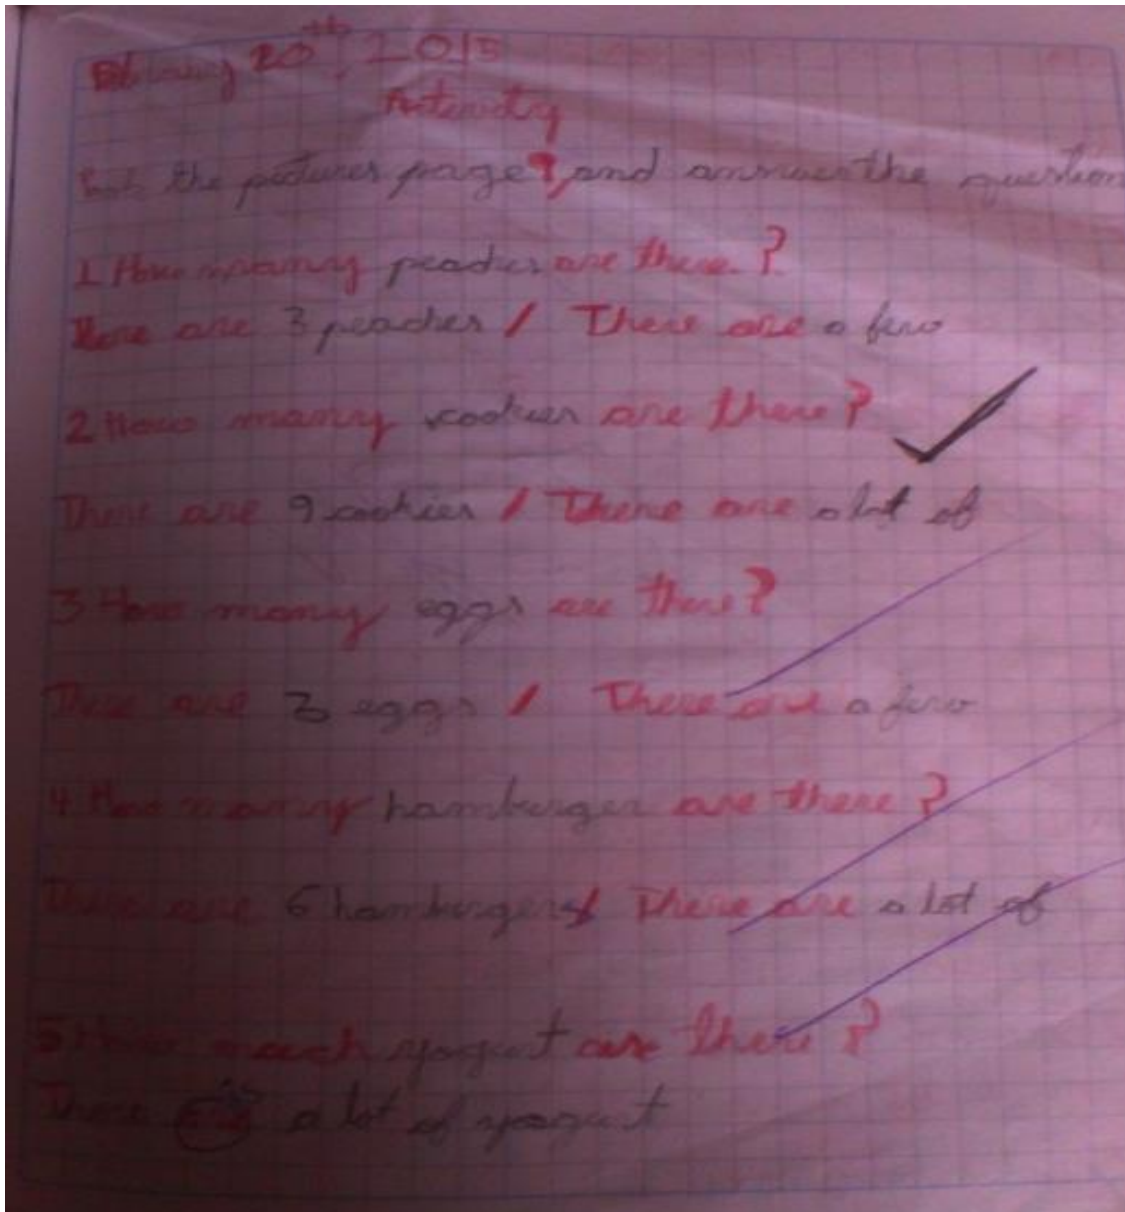 February 20th, 2015
the pictures page 9, and answer the question
1 How many peaches are there?
There are 3 peaches / There are a few
2 How many cookies are there?
There are 9 cookies / There are a lot of
3 How many eggs are there?
There are 3 eggs / There are a few
4 How many hamburger are there?
There are 6 hamburgers / There are a lot of
5 How much yogurt are there?
There is a lot of yogurt